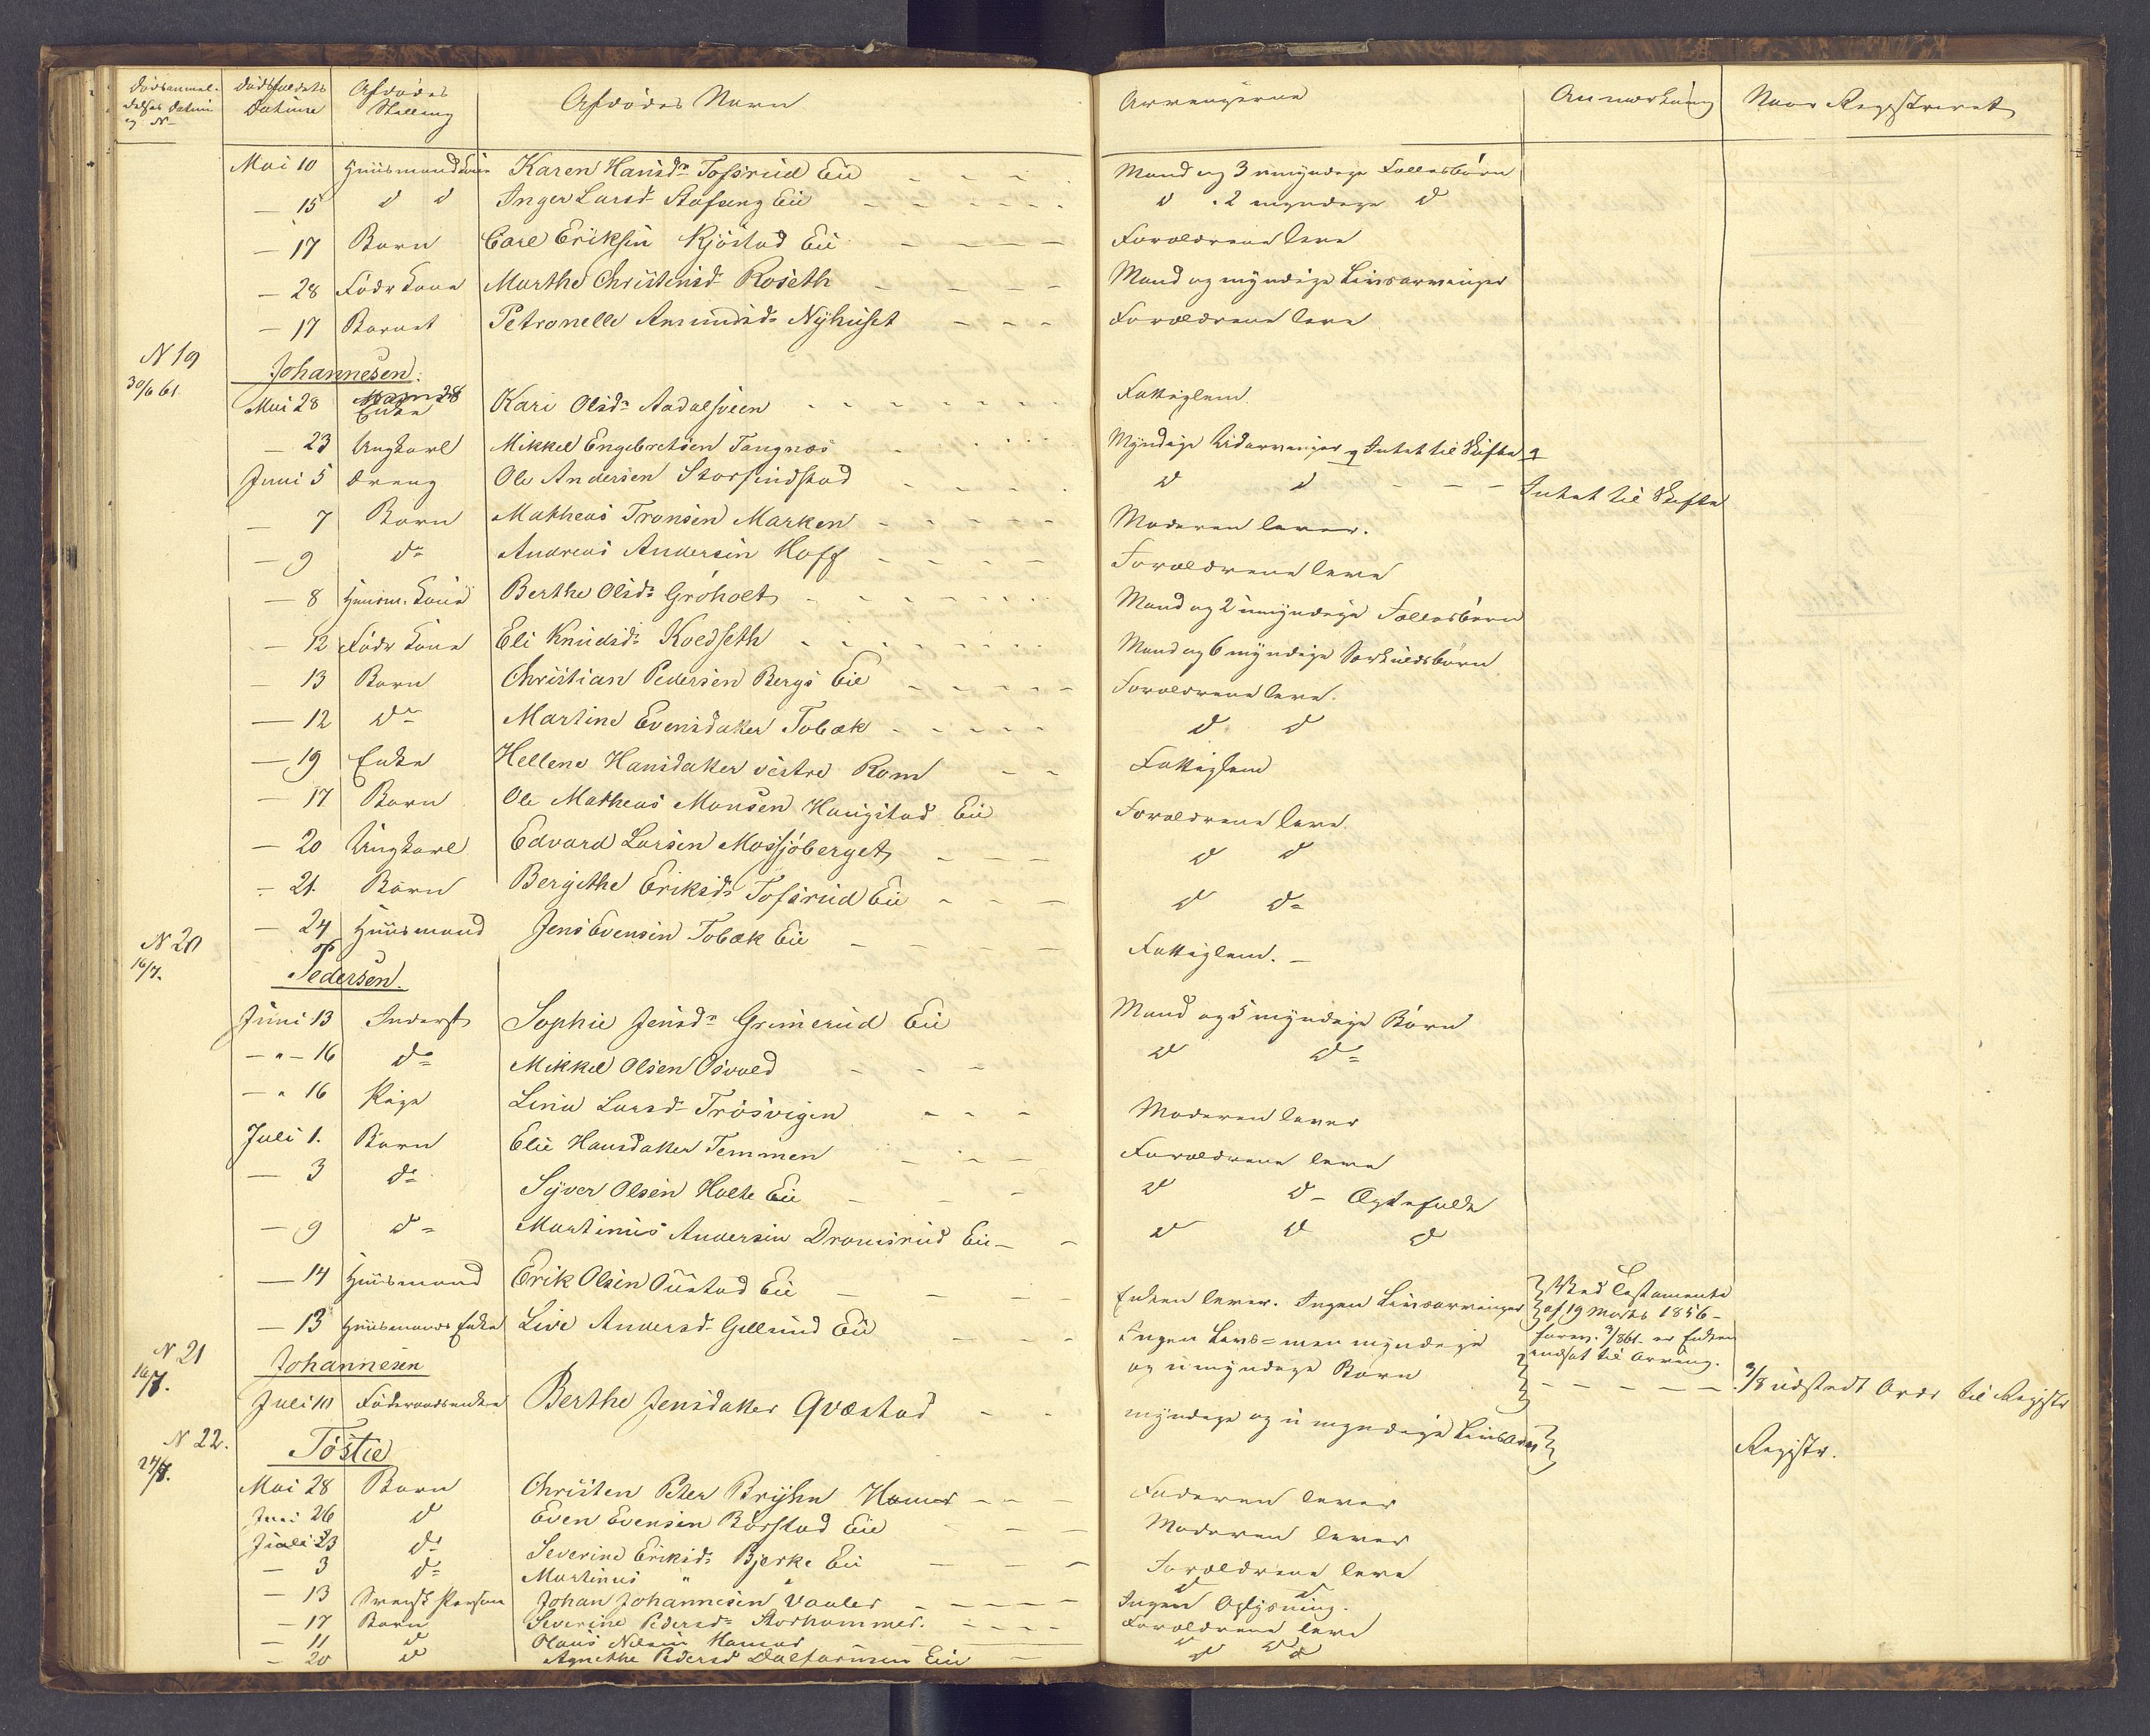 Dödsanmel- Dödsfaldets Afdödes Afdödes Navn Arvingerne Anmærkning Naar Registreret
delses Datum Datum Stilling
og N-
Mai 10 Huusmandskone Karen Hansd- Tofsrud Eie Mand og 3 umyndige Fællesbörn
- 15 d d Inger Larsd- Stafseng Eie d 2 myndige d
- 17 Barn Carl Eriksen Kjöstad Eie Forældrene leve
- 28 Föderkone Marthe Christensd Roseth Mand og myndige Livsarvinger
- 17 Barnet Petronelle Amundsd- Nyhuset Forældrene leve
N 19 Johannesen.
30/6 61.
Mai 28 Enke Kari Olsd- Aadalsveen Fattiglem.
- 23 Ungkarl Mikkel Engebretsen Tangnæs Myndige Udarvinger og Intet til Skifte
Juni 5 Dreng Ole Andersen Storfindstad d d - - - Intet til Skifte
- 7 Barn Matheus Tronsen Marken Moderen lever.
- 9 d- Andreas Andersen Hoff Forældrene leve
- 8 Huusm. Kone Berthe Olsd- Gröholt Mand og 2 umyndige Fællesbörn
- 12 Föderkone Eli Knudsd- Koedseth Mand og 6 myndige Særkuldsbörn
- 13 Barn Christian Pedersen Bergs Eie Forældrene leve.
- 12 d- Martine Evensdatter Tobæk d d
- 19 Enke Hellene Hansdatter vestre Rom Fattiglem
- 17 Barn Ole Matheus Monsen Haugstad Eie Forældrene leve.
- 20 Ungkarl Edvard Larsen Mossjöberget d d
- 21. Barn Bergithe Eriksd- Tofsrud Eie d d-
- 24 Huusmand Jens Evensen Tobæk Eie Fattiglem. -
N 20 Pedersen.
16/7.
Juni 13 Inderst Sophie Jensd- Grimerud Eie Mand og 5 myndige Börn
- " - 16 d- Mikkel Olsen Osvold d d-
- " 16 Pige Lina Larsd- Trösvigen Moderen lever
Juli 1. Barn Elie Hansdatter Temmen Forældrene leve
- 3 d- Syver Olsen Holte Eie d d- Ægtefolk
- 9 d- Martinus Andersen Dromsrud Eie d d d
- 14 Huusmand Erik Olsen Oustad Eie Enken lever. Ingen Livsarvinger Ved Testamente
af 19 Marts 1856-
- 13 Huusmands Enke Live Andersd- Gillund Eie Ingen Livs= men myndige
og umyndige Börn
er Enken
indsat til Arving.
N 21 Johannesen
16/7.
Juli 10 Föderaadsenke Berthe Jensdatter Qvæstad myndige og umyndige Livsarv
9/8 udstedt Ordr til Registr
Registr.
N 22. Töstie
24/7.
Mai 28 Barn Christen Peter Bryhn Hamar Faderen lever
Juni 26 d Even Evensen Börstad Eie Moderen lever
Juli 23 d- Severine Eriksd- Bjerke Eie Forældrene leve
- 3 d- Martinus " " d d
- 13 Svensk Person Johan Johannesen Vaaler Ingen Oplysning.
- 17 Barn Severine Pedersd- Storhammer. Forældrene leve
- 11 d Olaus Nilsen Hamar d d
- 20 d Agnethe Pedersd Dalfarmen Eie d d